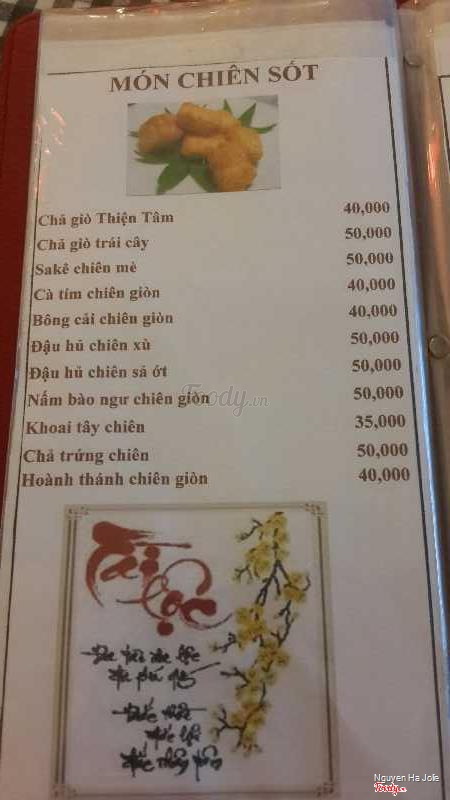 MÓN CHIÊN SỐT
Chả giò Thiện Tâm 40,000
Chả giò trái cây 50,000
Sakê chiên mè 50,000
Cà tím chiên giòn 40,000
Bông cải chiên giòn 40,000
Đậu hũ chiên xù 50,000
Đậu hũ chiên sả ớt 50,000
Nấm bào ngư chiên giòn 50,000
Foody.vn
Khoai tây chiên 35,000
Chả trứng chiên 50,000
Hoành thánh chiên giòn 40,000
Tài
Lộc
Nguyen Ha Jolie
Foody.vn